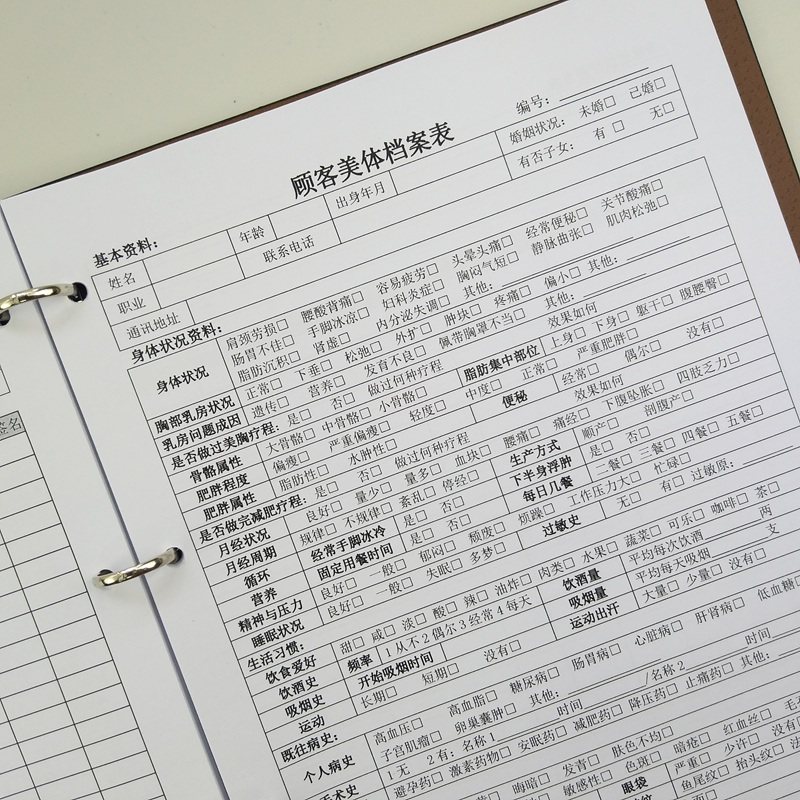 签名
顾客美体档案表
编号：
基本资料：
姓名 年龄 出身年月 婚姻状况： 未婚□ 已婚□
职业 联系电话 有否子女： 有 □ 无□
通讯地址
身体状况资料：
身体状况 肩颈劳损□ 腰酸背痛□ 容易疲劳□ 头晕头痛□ 经常便秘□ 关节酸痛□
肠胃不佳□ 手脚冰凉□ 妇科炎症□ 胸闷气短□ 静脉曲张□ 肌肉松弛□
脂肪沉积□ 肾虚□ 内分泌失调□ 其他：
胸部乳房状况 正常□ 下垂□ 松弛□ 外扩□ 肿块□ 疼痛□ 偏小□ 其他：
乳房问题成因 遗传□ 营养□ 发育不良□ 佩带胸罩不当□ 其他：
是否做过美胸疗程： 是□ 否□ 做过何种疗程 效果如何
骨骼属性 大骨骼□ 中骨骼□ 小骨骼□ 脂肪集中部位 上身□ 下身□ 躯干□ 腹腰臀□
肥胖程度 偏瘦□ 严重偏瘦□ 轻度□ 中度□ 正常□ 严重肥胖□
肥胖属性 脂肪性□ 水肿性□ 便秘 经常□ 偶尔□ 没有□
是否做完减肥疗程： 是□ 否□ 做过何种疗程 效果如何
月经状况 良好□ 量少□ 量多□ 血块□ 腰痛□ 痛经□ 下腹坠胀□ 四肢乏力□
月经周期 规律□ 不规律□ 紊乱□ 停经□ 生产方式 顺产□ 剖腹产□
循环 经常手脚冰冷 是□ 否□ 下半身浮肿 是□ 否□
营养 固定用餐时间 是□ 否□ 每日几餐 二餐□ 三餐□ 四餐□ 五餐□
精神与压力 良好□ 一般□ 郁闷□ 颓废□ 烦躁□ 工作压力大□ 忙碌□
睡眠状况 良好□ 一般□ 失眠□ 多梦□ 过敏史 无□ 有□ 过敏原：
生活习惯：
饮食爱好 甜□ 咸□ 淡□ 酸□ 辣□ 油炸□ 肉类□ 水果□ 蔬菜□ 可乐□ 咖啡□ 茶□
饮酒史 频率 1 从不 2 偶尔 3 经常 4 每天 饮酒量 平均每次饮酒 两
吸烟史 开始吸烟时间 吸烟量 平均每天吸烟 支
运动 长期□ 短期□ 没有□ 运动出汗 大量□ 少量□ 没有□
既往病史：
个人病史 高血压□ 高血脂□ 糖尿病□ 肠胃病□ 心脏病□ 肝肾病□ 低血糖
子宫肌瘤□ 卵巢囊肿□ 其他：
手术史 1 无 2 有：名称 1 时间 /名称 2 时间
避孕药□ 激素药物□ 安眠药□ 减肥药□ 降压药□ 止痛药□ 其他：
晦暗□ 发青□ 肤色不均□ 红血丝□
敏感性□ 色斑□ 暗疮□ 少许□ 没有
眼袋 严重□
鱼尾纹□ 抬头纹□